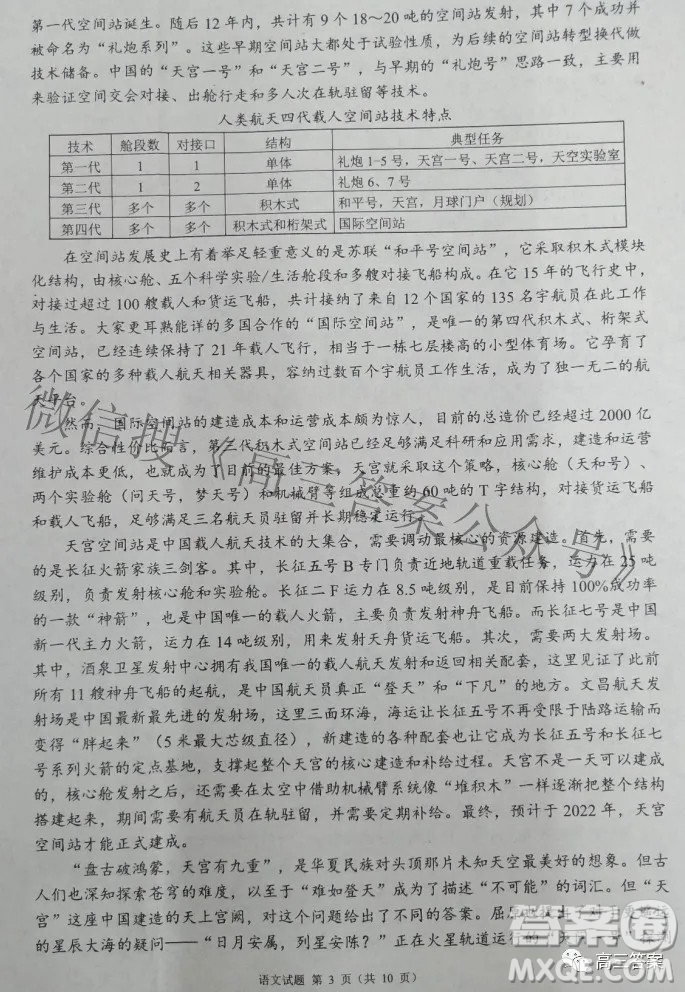 第一代空间站诞生。随后 12 年内，共计有 9 个 18～20 吨的空间站发射，其中 7 个成功并
被命名为“礼炮系列”。这些早期空间站大都处于试验性质，为后续的空间站转型换代做
技术储备。中国的“天宫一号”和“天宫二号”，与早期的“礼炮号”思路一致，主要用
来验证空间交会对接、出舱行走和多人次在轨驻留等技术。
人类航天四代载人空间站技术特点
技术 舱段数 对接口 结构 典型任务
第一代 1 1 单体 礼炮 1-5 号，天宫一号、天宫二号，天空实验室
第二代 1 2 单体 礼炮 6、7 号
第三代 多个 多个 积木式 和平号，天宫，月球门户（规划）
第四代 多个 多个 积木式和桁架式 国际空间站
在空间站发展史上有着举足轻重意义的是苏联“和平号空间站”，它采取积木式模块
化结构，由核心舱、五个科学实验/生活舱段和多艘对接飞船构成。在它 15 年的飞行史中，
对接过超过 100 艘载人和货运飞船，共计接纳了来自 12 个国家的 135 名宇航员在此工作
与生活。大家更耳熟能详的多国合作的“国际空间站”，是唯一的第四代积木式、桁架式
空间站，已经连续保持了 21 年载人飞行，相当于一栋七层楼高的小型体育场。它孕育了
各个国家的多种载人航天相关器具，容纳过数百个宇航员工作生活，成为了独一无二的航
天平台。
然而，国际空间站的建造成本和运营成本颇为惊人，目前的总造价已经超过 2000 亿
美元。综合性价比而言，第三代积木式空间站已经足够满足科研和应用需求，建造和运营
维护成本更低，也就成为了目前的最佳方案。天宫就采取这个策略，核心舱（天和号）、
两个实验舱（问天号，梦天号）和机械臂等组成总重约 60 吨的 T 字结构，对接货运飞船
和载人飞船，足够满足三名航天员驻留并长期稳定运行。
天宫空间站是中国载人航天技术的大集合，需要调动最核心的资源建造。首先，需要
的是长征火箭家族三剑客。其中，长征五号 B 专门负责近地轨道重载任务，运力在 25 吨
级别，负责发射核心舱和实验舱。长征二 F 运力在 8.5 吨级别，是目前保持 100%成功率
的一款“神箭”，也是中国唯一的载人火箭，主要负责发射神舟飞船。而长征七号是中国
新一代主力火箭，运力在 14 吨级别，用来发射天舟货运飞船。其次，需要两大发射场。
其中，酒泉卫星发射中心拥有我国唯一的载人航天发射和返回相关配套，这里见证了此前
所有 11 艘神舟飞船的起航，是中国航天员真正“登天”和“下凡”的地方。文昌航天发
射场是中国最新最先进的发射场，这里三面环海，海运让长征五号不再受限于陆路运输而
变得“胖起来”（5 米最大芯级直径），新建造的各种配套也让它成为长征五号和长征七
号系列火箭的定点基地，支撑起整个天宫的核心建造和补给过程。天宫不是一天可以建成
的，核心舱发射之后，还需要在太空中借助机械臂系统像“堆积木”一样逐渐把整个结构
搭建起来，期间需要有航天员在轨驻留，并需要定期补给。最终，预计于 2022 年，天宫
空间站才能正式建成。
“盘古破鸿蒙，天宫有九重”，是华夏民族对头顶那片未知天空最美好的想象。但古
人们也深知探索苍穹的难度，以至于“难如登天”成为了描述“不可能”的词汇。但“天
宫”这座中国建造的天上宫阙，对这个问题给出了不同的答案。屈原
的星辰大海的疑问——“日月安属，列星安陈？”正在火星轨道运行的
语文试题 第 3 页（共 10 页）
微信搜《高三答案公众号》
答案圈
MXQE.COM
高三答案